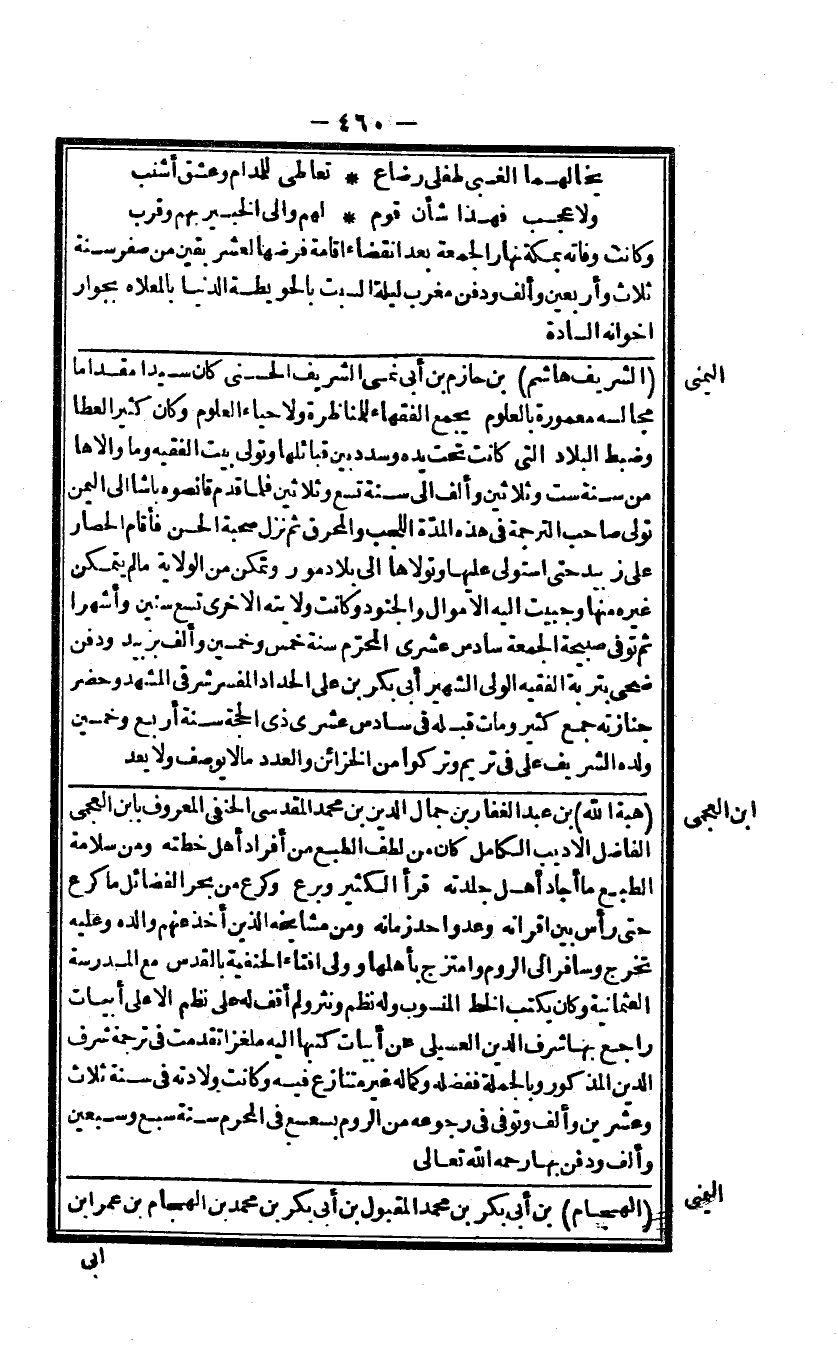 — ٤٦٠ —
يخالهما الغبى طفلى رضاع * تعالمى للمدام وعشق أشنب
ولا عجب فهذا شأن قوم * لهم والى الخبير بهم وقرب
وكانت وفاته بمكة نهار الجمعة بعد انقضاء اقامة فرضها لعشر بقين من صفر سنة
ثلاث وأربعين وألف ودفن مغرب ليلة السبت بالحويطة الدنيا بالمعلاه بجوار
اخوانه السادة
اليمنى
(الشريف هاشم) بن حازم بن أبى نمى الشريف الحسنى كان سيدا مقداما
مجالسه معمورة بالعلوم يجمع الفقهاء للمناظرة ولاحياء العلوم وكان كثير العطا
وضبط البلاد التى كانت تحت يده وسدد بين قبائلها وتولى بيت الفقيه وما والاها
من سنة ست وثلاثين وألف الى سنة تسع وثلاثين فلما قدم قانصوه باشا الى اليمن
تولى صاحب الترجمة فى هذه المدّة اللحب والمحرق ثم نزل صحبة الحسن فأقام الحصار
على زبيد حتى استولى عليها وتولاها الى بلاد مور وتمكن من الولاية مالم يتمكن
غيره منها وجبيت اليه الاموال والجنود وكانت ولايته الاخرى تسع سنين وأشهرا
ثم توفى صبيحة الجمعة سادس عشرى المحرّم سنة خمس وخمسين وألف بزبيد ودفن
ضحى بتربة الفقيه الولى الشهير أبى بكر بن على الحداد المفسر شرقى المشهد وحضر
جنازته جمع كثير ومات قبله فى سادس عشرى ذى الحجة سنة أربع وخمسين
ولده الشريف على فى تريم وتركوا من الخزائن والعدد مالا يوصف ولا يعد
ابن العجمى
(هبة الله) بن عبد الغفار بن جمال الدين بن محمد المقدسى الحنفى المعروف بابن العجمى
الفاضل الاديب الكامل كان من لطف الطبع من أفراد أهل خطته ومن سلامة
الطبع ما أجاد أهل جلدته قرأ الكثير وبرع وكرع من بحر الفضائل ما كرع
حتى رأس بين اقرانه وعد واحد زمانه ومن مشايخه الذين أخذ عنهم والده وعليه
تخرج وسافر الى الروم وامتزج بأهلها وولى افتاء الحنفية بالقدس مع المدرسة
العثمانية وكان يكتب الخط المنسوب وله نظم ونثر ولم أقف له على نظم الا على أبيات
راجع بها شرف الدين العسيلى عن أبيات كتبها اليه ملغزا تقدمت فى ترجمة شرف
الدين المذكور وبالجملة ففضله وكماله غير متنازع فيه وكانت ولادته فى سنة ثلاث
وعشرين وألف وتوفى فى رجوعه من الروم بسعسع فى المحرم سنة سبع وسبعين
وألف ودفن بها رحمه الله تعالى
اليمنى
(الهجام) بن أبى بكر بن محمد المقبول بن أبى بكر بن محمد بن الهجام بن عمر ابن
ابى